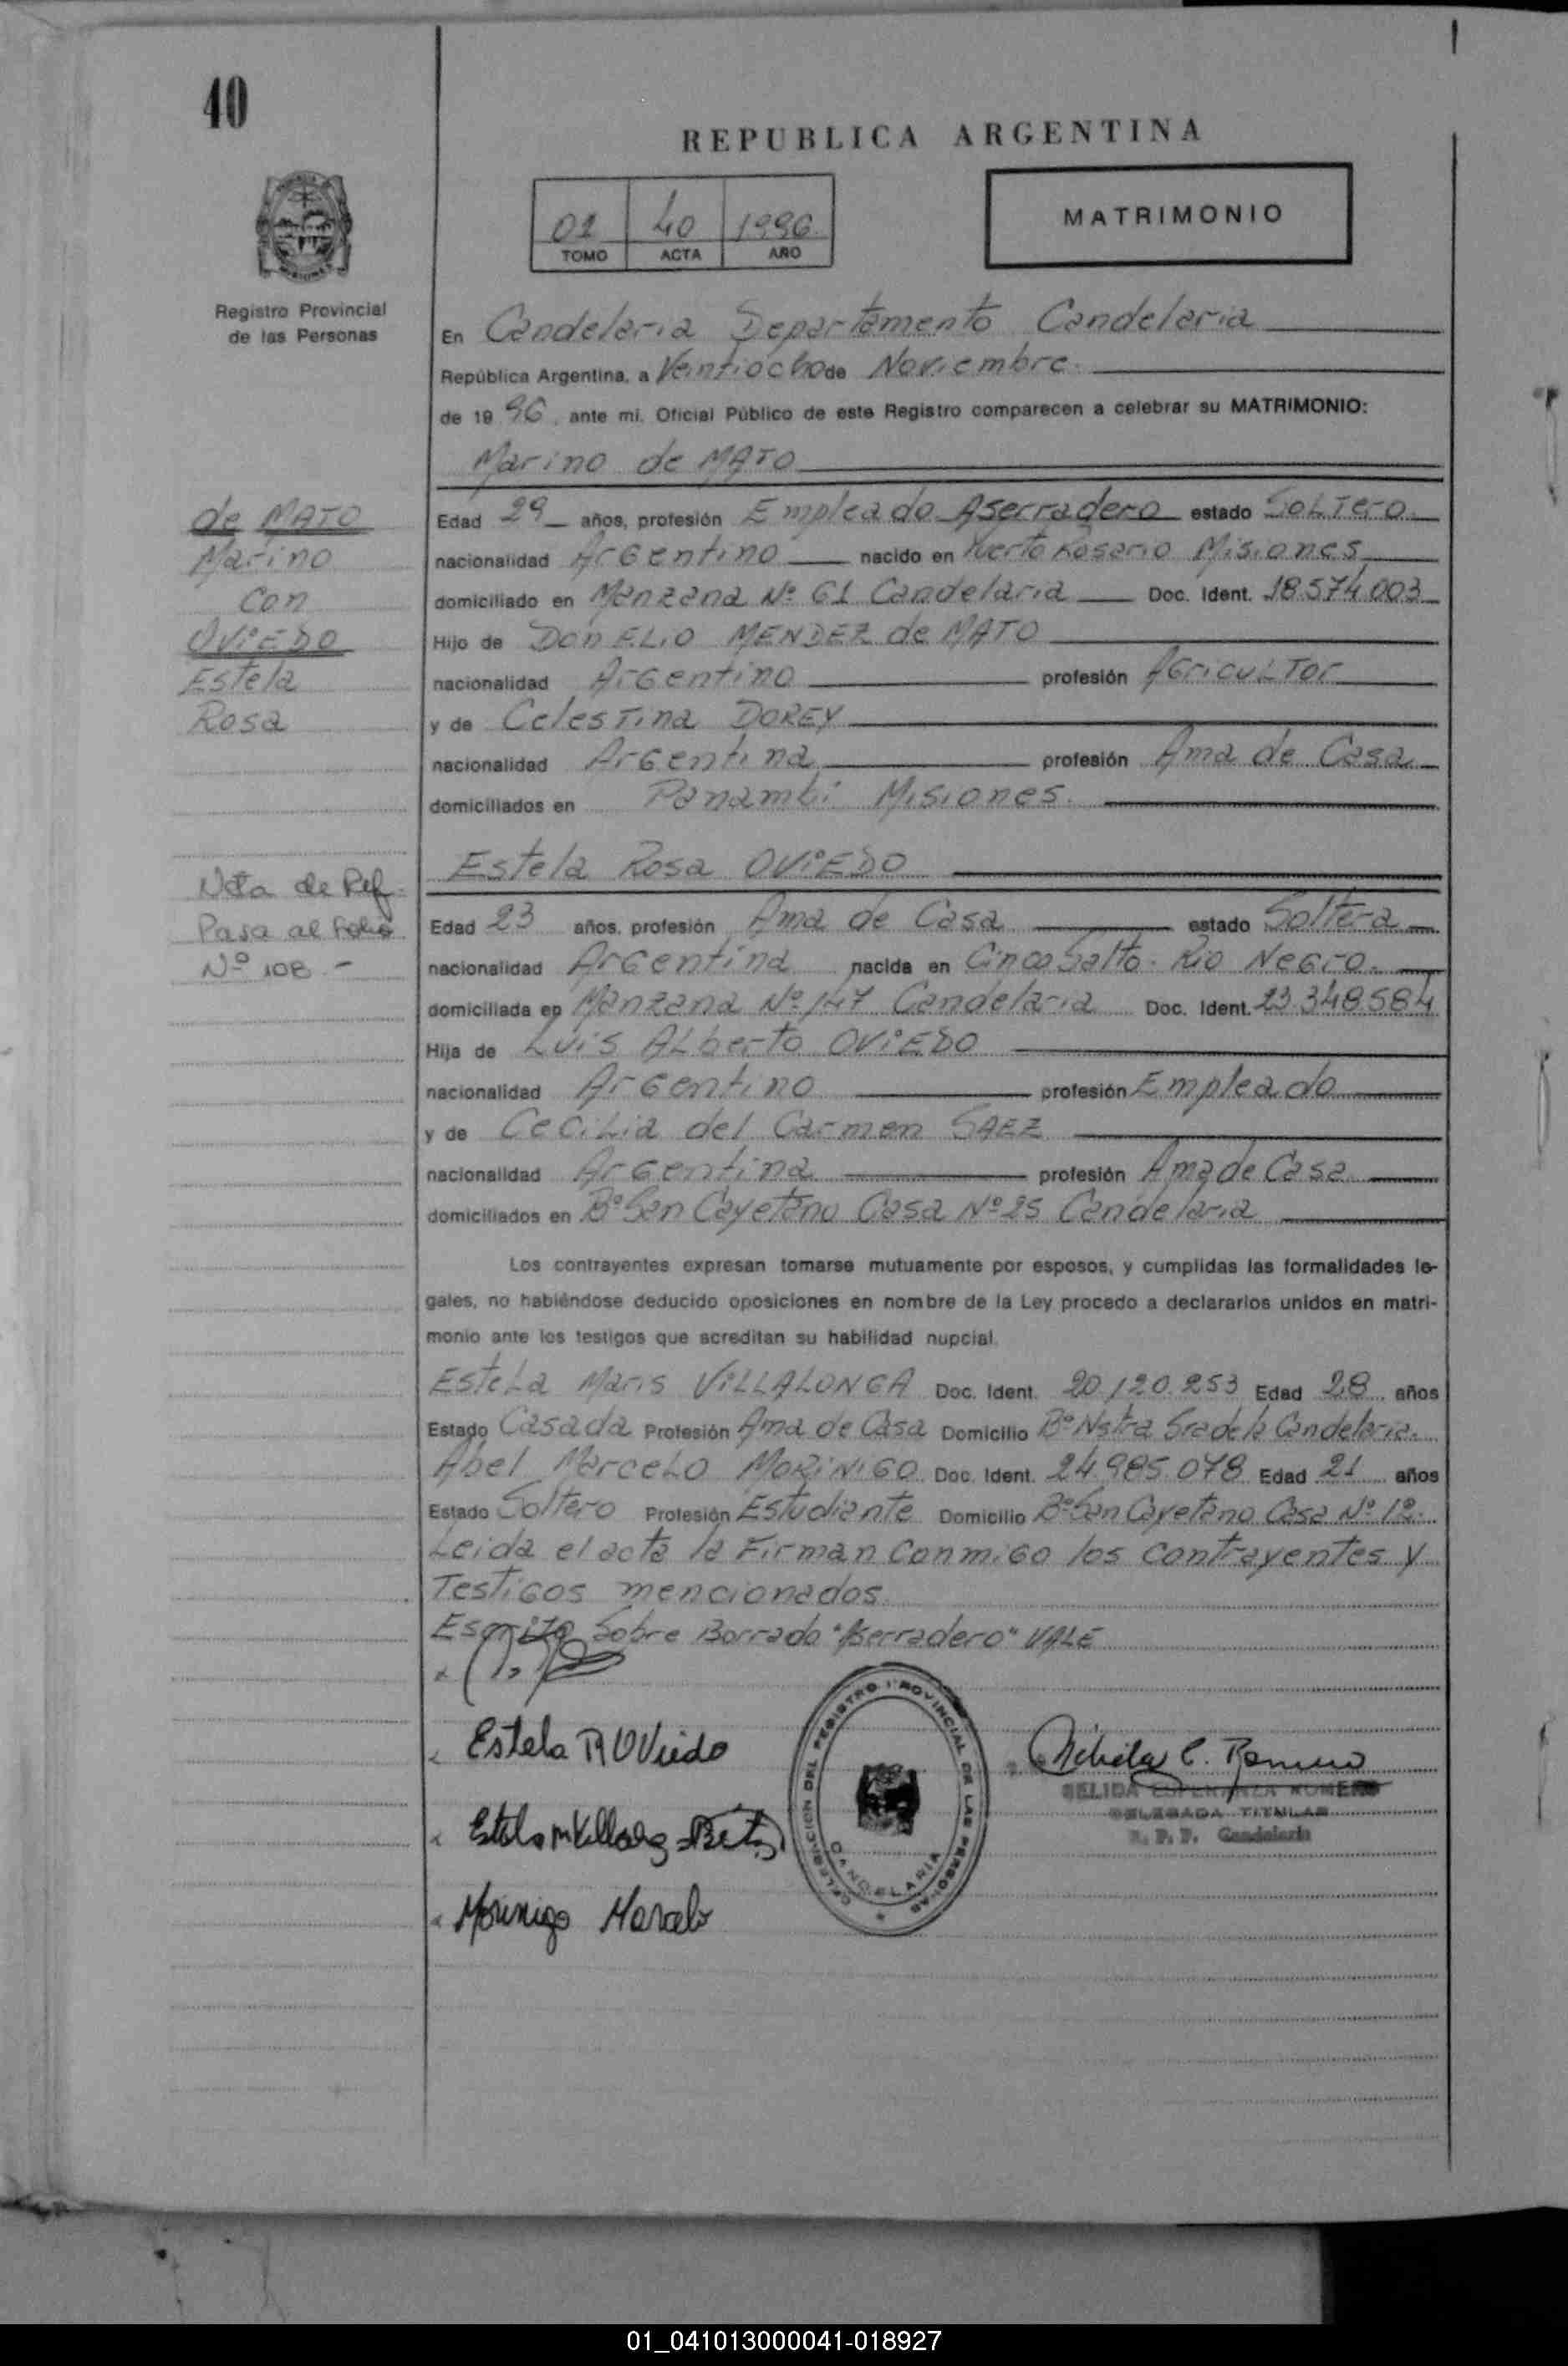 40
REPUBLICA ARGENTINA
01 40 1996
TOMO ACTA AÑO
MATRIMONIO
Registro Provincial
de las Personas
En Candelaria Departamento Candelaria
República Argentina, a Veintiocho de Noviembre.
de 19 96, ante mi, Oficial Público de este Registro comparecen a celebrar su MATRIMONIO:
Marino de MATO
de MATO
Marino
con
OViEDO
Estela
Rosa
Edad 29 años, profesión Empleado Aserradero estado SOLTero.
nacionalidad ArGentino nacido en Puerto Rosario Misiones
domiciliado en Manzana Nº 61 Candelaria Doc. Ident. 18.574.003
Hijo de Don ELiO MENDEZ de MATO
nacionalidad ArGentino profesión AGricuLTor
y de CelesTina DOREY
nacionalidad ArGentina profesión Ama de Casa
domiciliados en Panambi Misiones.
Estela Rosa OViEDO
Nota de Ref.
Pasa al Folio
Nº 108.-
Edad 23 años, profesión Ama de Casa estado Soltera
nacionalidad ArGentina nacida en Cinco Salto. Rio NeGro.
domiciliada en Manzana Nº 147 Candelaria Doc. Ident. 23.348.584
Hija de Luis ALberto OViEDO
nacionalidad ArGentino profesión Empleado
y de CeciLia del Carmen SAEZ
nacionalidad ArGentina profesión Ama de Casa
domiciliados en Bº San Cayetano Casa Nº 25 Candelaria
Los contrayentes expresan tomarse mutuamente por esposos, y cumplidas las formalidades le-
gales, no habiéndose deducido oposiciones en nombre de la Ley procedo a declararlos unidos en matri-
monio ante los testigos que acreditan su habilidad nupcial.
EsteLa Maris ViLLALONGA Doc. Ident. 20.120.253 Edad 28 años
Estado Casada Profesión Ama de Casa Domicilio Bº Nstra Sra de la Candelaria.
Abel MarceLo MORiNiGO Doc. Ident. 24.985.078 Edad 21 años
Estado Soltero Profesión Estudiante Domicilio Bº San Cayetano Casa Nº 12.
Leida el acta la Firman ConmiGo los contrayentes y
TestiGos mencionados
Escrito Sobre Borrado "Aserradero" VALE
Estela R OViedo
Morinigo Marcelo
DELEGACION DEL REGISTRO PROVINCIAL DE LAS PERSONAS
CANDELARIA
ESPERANZA ROMERO
DELEGADA TITULAR
R. P. P. Candelaria
01_041013000041-018927